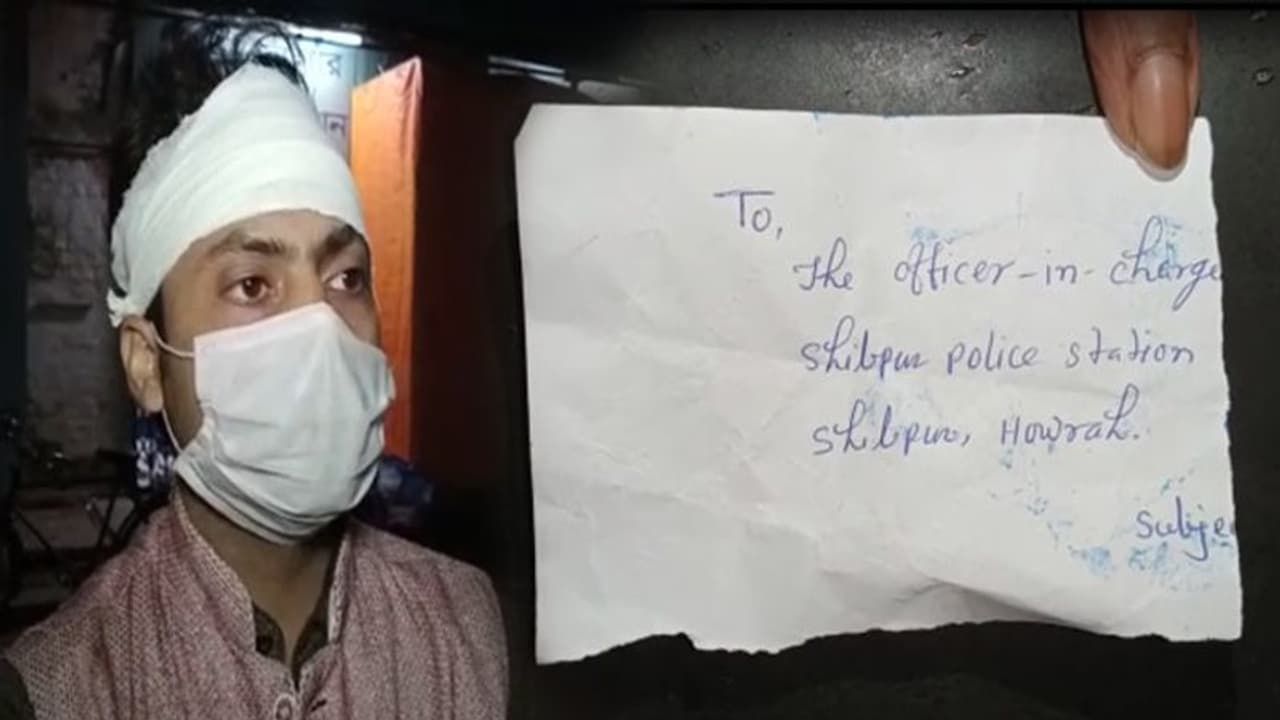 To,
The officer-in-charge
Shibpur police station
Shibpur, Howrah.
Subje